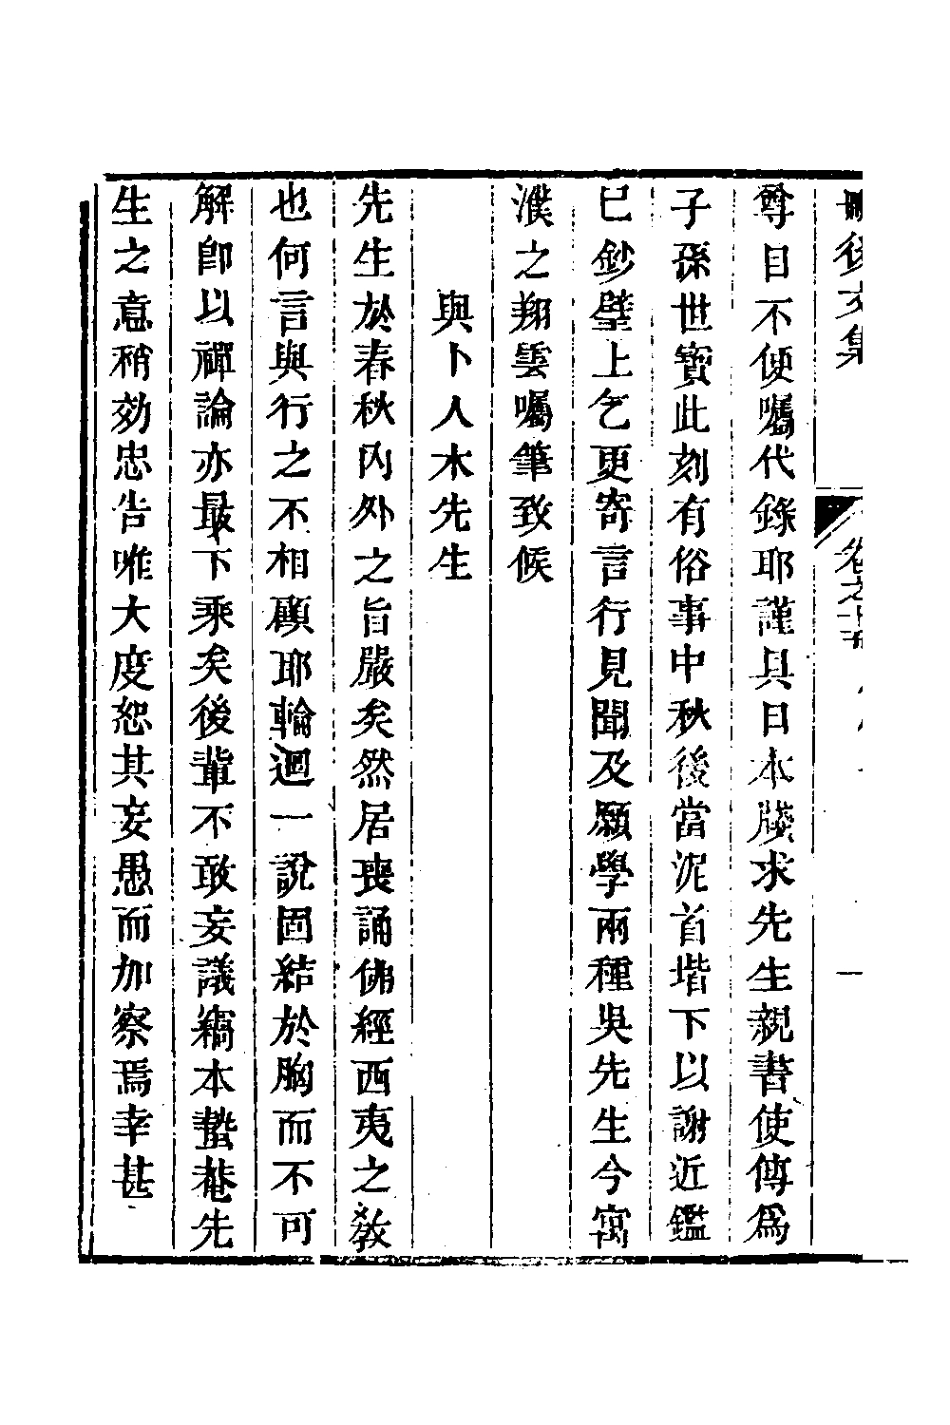 後文集 卷之
尊目不便囑代錄耶謹具日本牋求先生親書使傳爲
子孫世寶此刻有俗事中秋後當泥首堦下以謝近鑑
已鈔壁上乞更寄言行見聞及願學兩種吳先生今寓
濮之翔雲囑筆致候
與卜人木先生
先生於春秋內外之旨嚴矣然居喪誦佛經西夷之教
也何言與行之不相顧耶輪迴一說固結於胸而不可
解卽以禪論亦最下乘矣後輩不敢妄議稿本蟄菴先
生之意稍効忠告唯大度恕其妄愚而加察焉幸甚